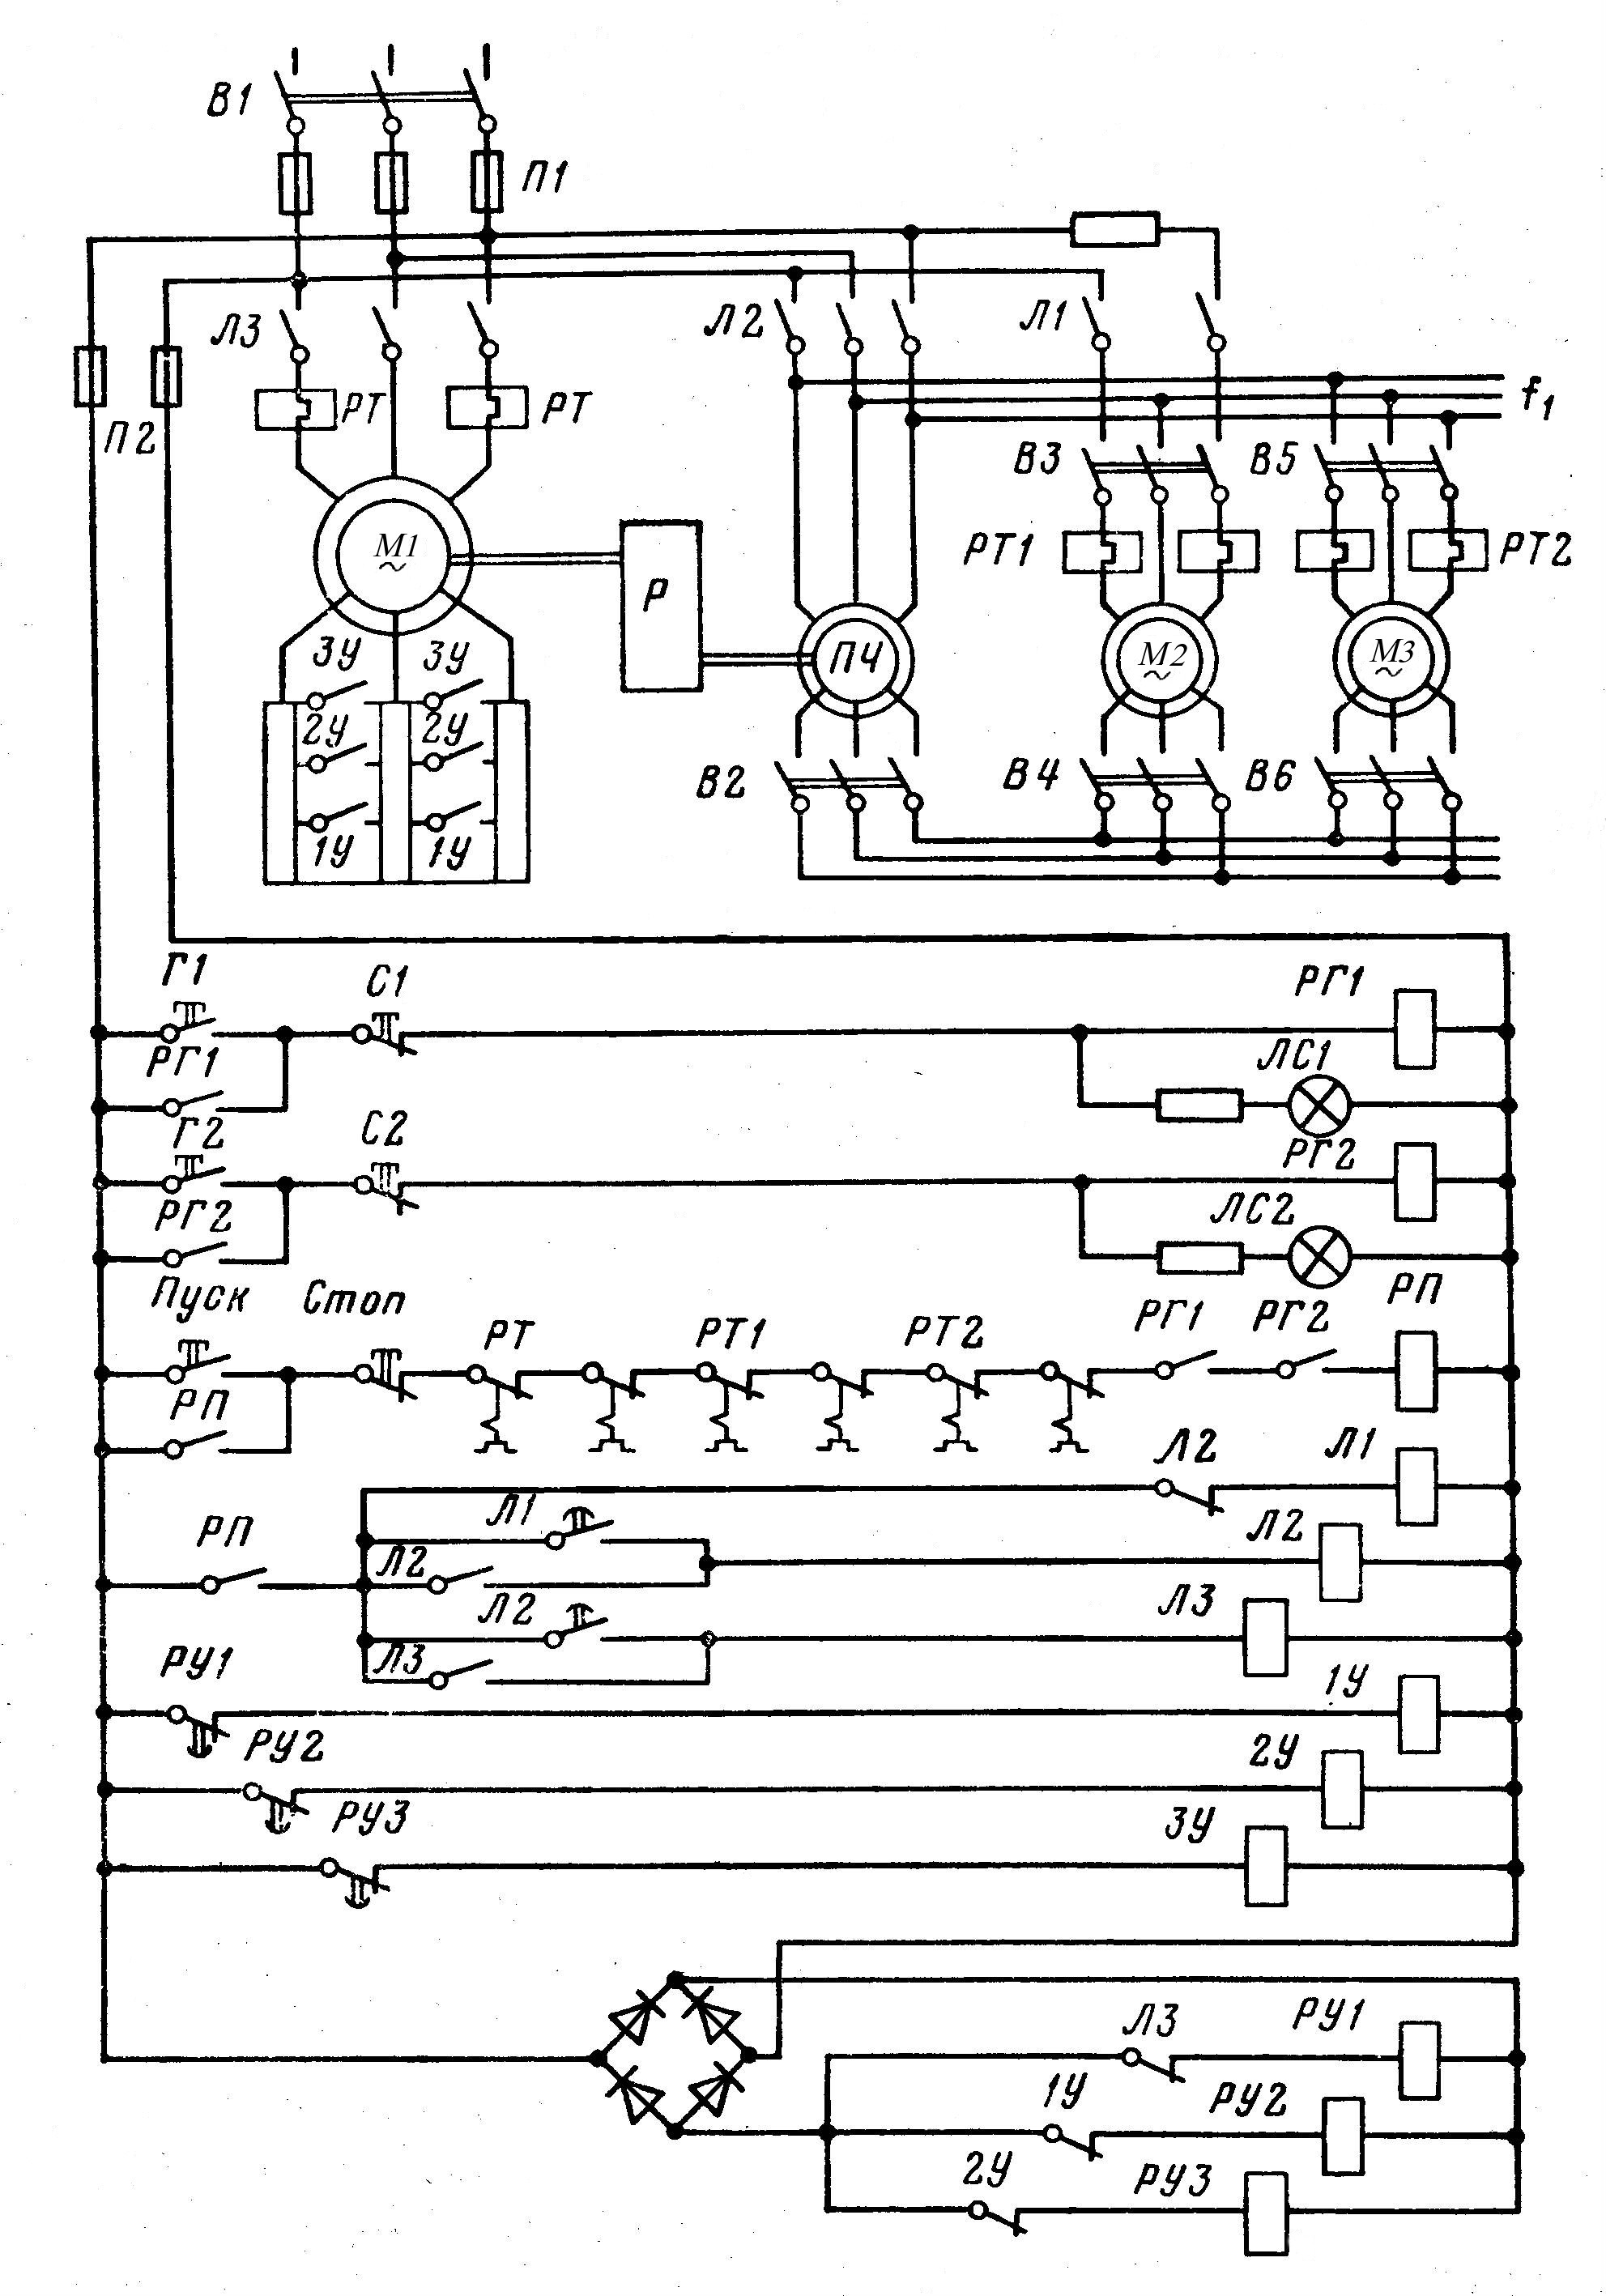 В1
П1
Л3
Л2
Л1
РТ
РТ
f1
П2
В3
В5
М1
РТ1
РТ2
Р
3У
3У
ПЧ
М2
М3
2У
2У
В2
В4
В6
1У
1У
Г1
С1
РГ1
РГ1
ЛС1
Г2
С2
РГ2
РГ2
ЛС2
Пуск
Стоп
РП
РТ
РТ1
РТ2
РГ1
РГ2
РП
Л2
Л1
Л1
РП
Л2
Л2
Л2
Л3
Л3
РУ1
1У
РУ2
2У
РУ3
3У
Л3
РУ1
1У
РУ2
2У
РУ3